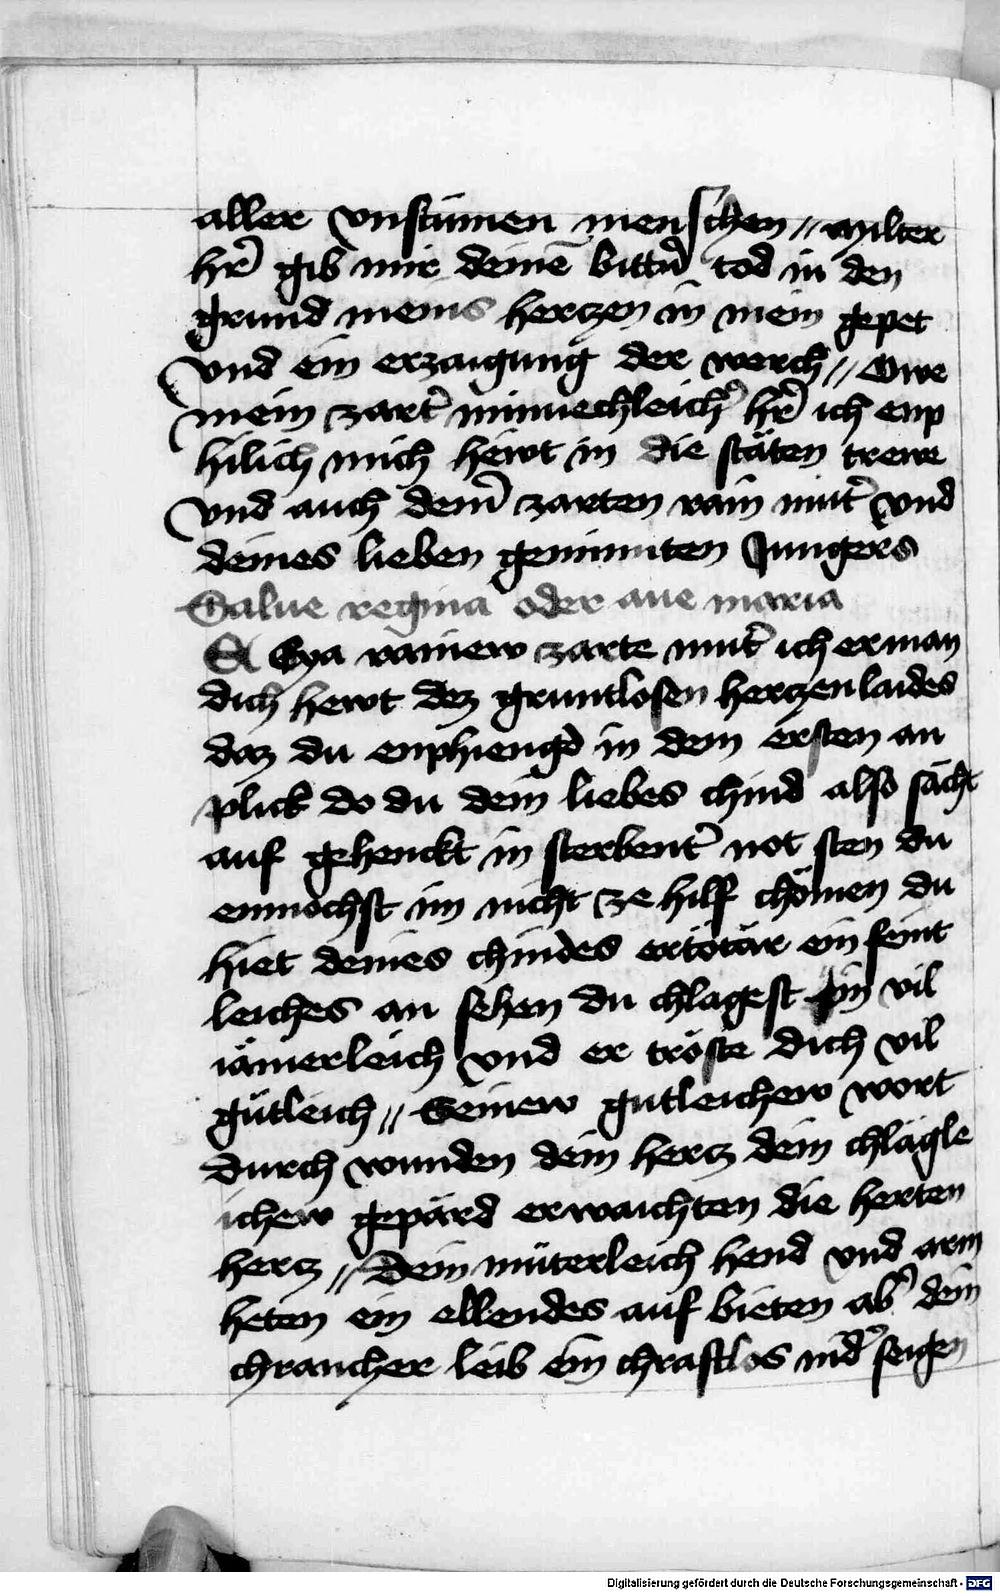 aller vnstümen menschen // milter
hr̄ gib mir deinē bittn̄ tod in den
grund meins hertzen in mein gepet
vnd ein erzaigung der werch // Owe
mein zart̄ minnechleich̄ hr̄ ich enp
hilich mich hewt in die stäten trewe
vnd auch dein̄ zarten rain mut̄ vnd
deines lieben geminnten Jungers
Salue regina oder aue maria
Eya rainew zarte mut̄ ich erman
dich hewt dez gruntlosen hertzenlaides
daz du enphiengd in dem ersten an
plick do du dein liebes chind also sächt
auf gehenckt in sterbent̄ not sten du
enmochst im nicht ze hilf chömen du
hiet deines chindes ertötär ein feint
leiches an sehen du chlagest in vil
iämerleich vnd er tröste dich vil
gütleich // Seinew gutleichew wort
durch wunden dein hertz dein chlägle
ichew gepärd erwaichten die herten
hertz // Dein müterleich hend vnd arm
heten ein ellendes auf bieten ab̄ dein
chrancher leib ein chraftlos nid̄ seigen
Digitalisierung gefördert durch die Deutsche Forschungsgemeinschaft - DFG